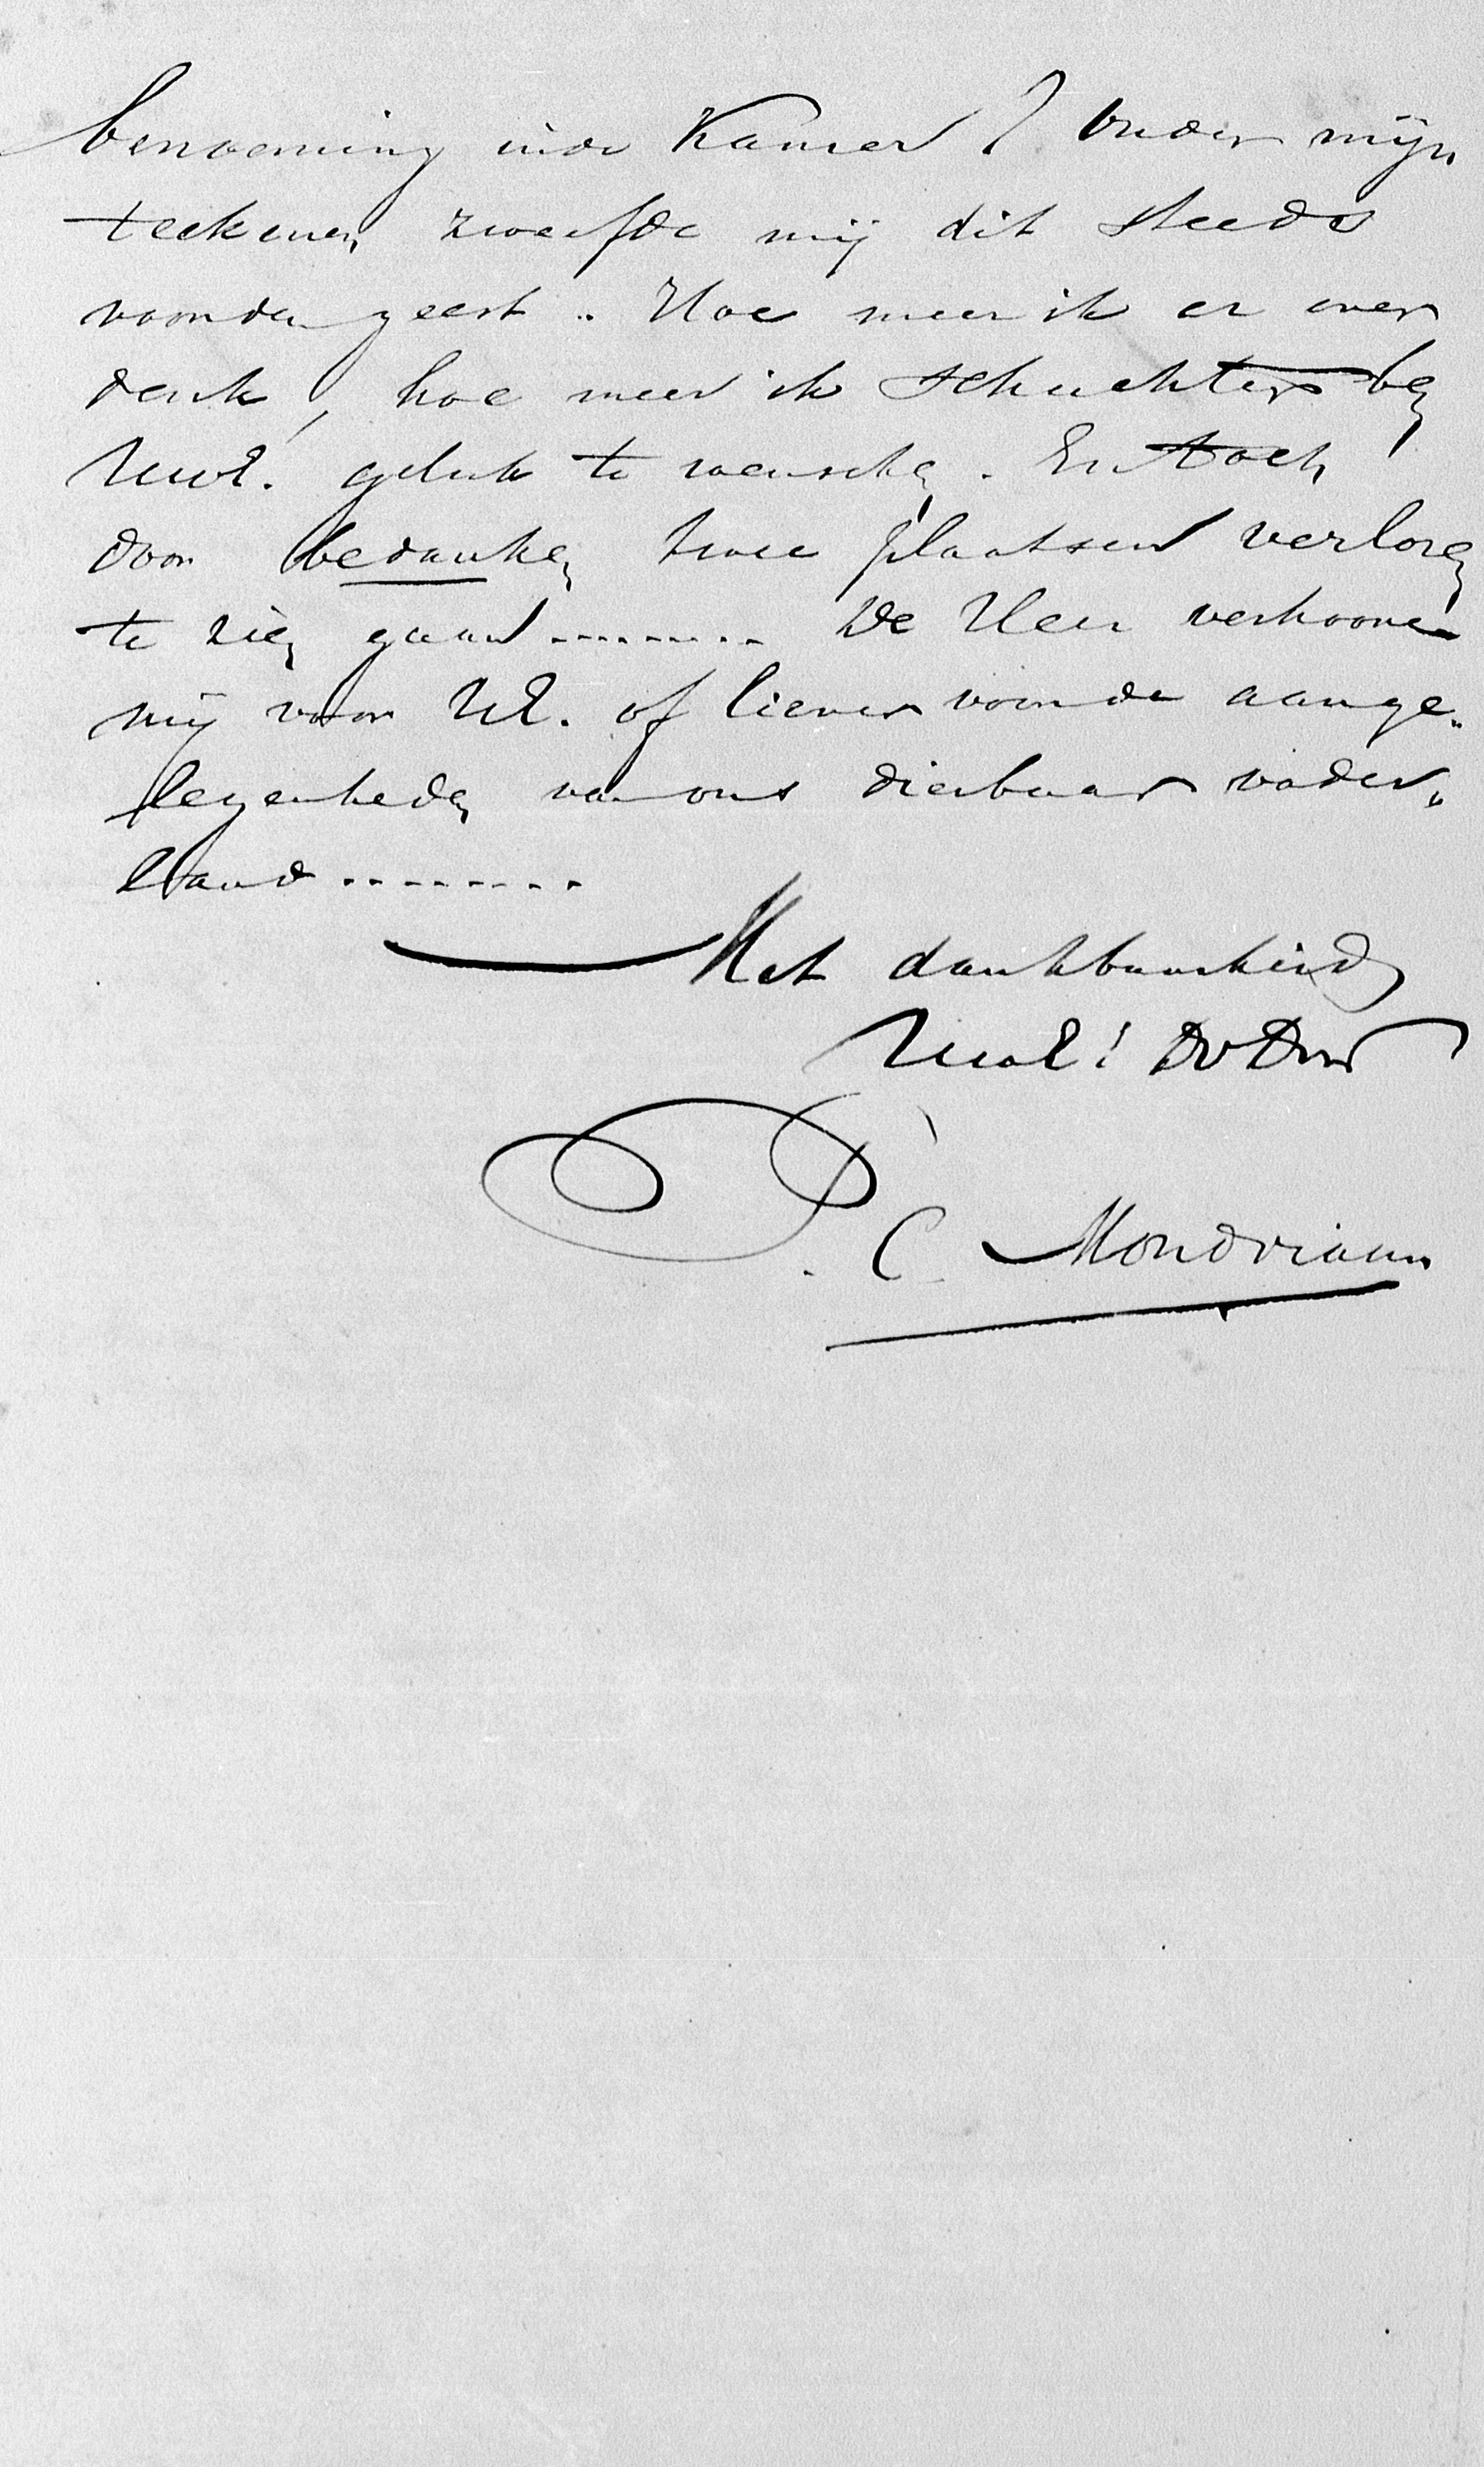 benoeming in de Kamer? Onder mijn
teekenen zweefde mij dit steeds
voor den geest.. Hoe meer ik er over
denk, hoe meer ik schuchter ben
UwE. geluk te wenschen. En toch
door bedanken twee plaatsen verloren
te zien gaan......... De Heer verhoore
mij voor UE. of liever voor de aange„
legenheden van ons dierbaar vader„
land........
Met dankbaarheid
UwE! Dv Dnr
P. C. Mondriaan